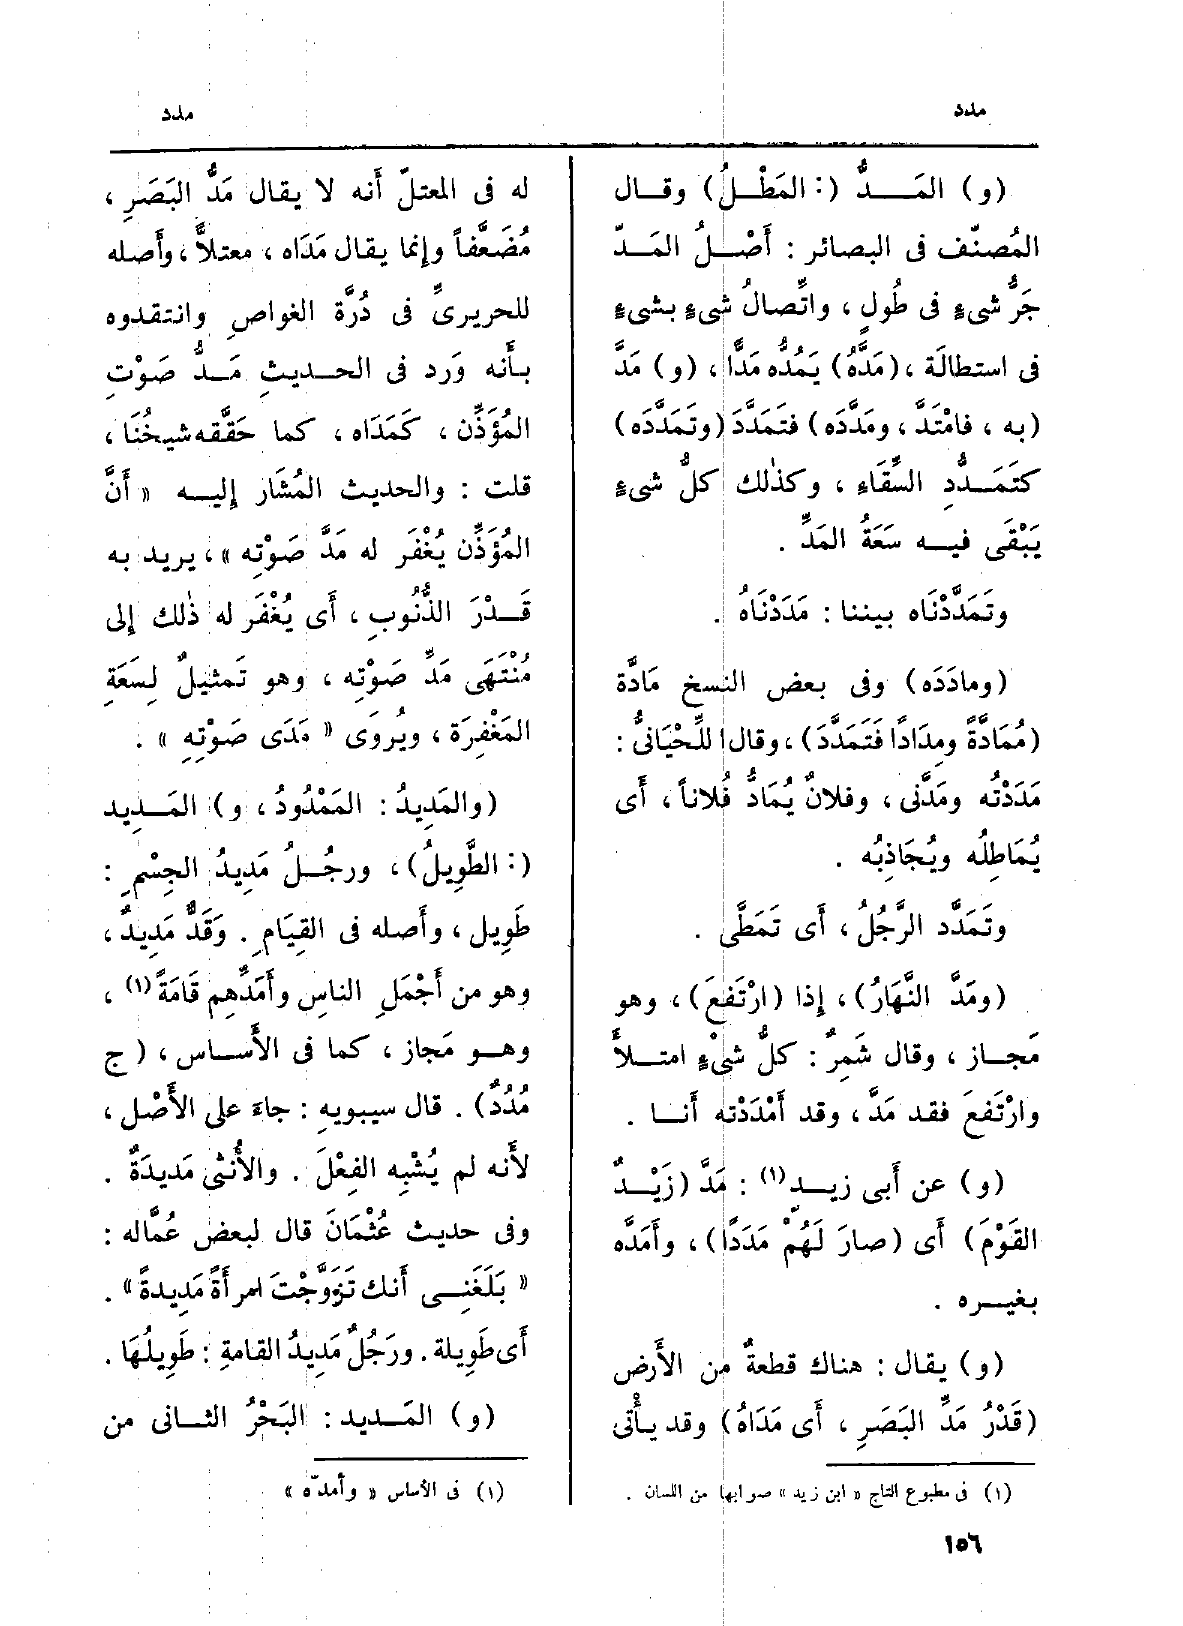 مدد
مدد
(و) المَــدُّ (: المَطْلُ) وقال
المُصنّف فى البصائر : أَصْلُ المَدّ
جَرُّ شىءٍ فى طُولٍ ، واتِّصالُ شىءٍ بشىءٍ
فى استطالَة ، (مَدَّهُ) يَمُدُّه مَدًّا ، (و) مَدَّ
(به ، فامْتَدَّ ، ومَدَّدَه) فتَمَدَّدَ (وتَمَدَّدَه)
كتَمَــدُّدِ السِّقَاءِ ، وكذٰلك كلُّ شىءٍ
يَبْقَى فيــه سَعَةُ المَدِّ .
وتَمَدَّدْنَاه بيننا : مَدَدْنَاهُ .
(ومادَدَه) وفى بعض النسخ مَادَّة
(مُمَادَّةً ومِدَادًا فَتَمَدَّدَ) ، وقال اللِّحْيَانىُّ :
مَدَدْتُه ومَدَّنى ، وفلانٌ يُمَادُّ فُلاناً ، أَى
يُمَاطِلُه ويُجَاذِبُه .
وتَمَدَّد الرَّجُلُ ، أَى تَمَطَّى .
(ومَدَّ النَّهَارُ) ، إِذا (ارْتَفعَ) ، وهو
مَجــاز ، وقال شَمِرٌ : كلُّ شىْءٍ امتــلأَ
وارْتَفعَ فقد مَدَّ ، وقد أَمْدَدْته أَنــا .
(و) عن أَبى زيــدٍ (١) : مَدَّ (زَيْــدٌ
القَوْمَ) أَى (صارَ لَهُمْ مَدَدًا) ، وأَمَدَّه
بغيــره .
(و) يقال : هناك قطعةٌ من الأَرض
(قَدْرُ مَدِّ البَصَرِ ، أَى مَدَاهُ) وقد يأْتى
(١) فى مطبوع التاج « ابن زيد » صوابها من اللسان .
له فى المعتلّ أَنه لا يقال مَدُّ البَصَرِ ،
مُضَعَّفاً وإِنما يقال مَدَاه ، معتلاًّ ، وأَصله
للحريرىِّ فى دُرَّة الغواصِ وانتقدوه
بأَنه وَرد فى الحــديثِ مَــدُّ صَوْتِ
المُؤَذِّن ، كَمَدَاه ، كما حَقَّقه شيخُنَا ،
قلت : والحديث المُشَار إِليــه « أَنَّ
المُؤَذِّن يُغْفَر له مَدَّ صَوْتِه » ، يريد به
قَــدْرَ الذُّنُوبِ ، أَى يُغْفَر له ذٰلك إِلى
مُنْتَهَى مَدِّ صَوْتِه ، وهو تَمثيلٌ لِسَعَةِ
المَغْفِرَة ، ويُروَى « مَدَى صَوْتِهِ » .
(والمَدِيدُ : المَمْدُودُ ، و) المَــدِيد
(: الطَّوِيلُ) ، ورجُــلُ مَدِيدُ الجِسْمِ :
طَوِيل ، وأَصله فى القِيَامِ . وَقَدٌّ مَدِيدٌ ،
وهو من أَجْمَلِ الناسِ وأَمَدِّهِم قَامَةً (١) ،
وهــو مَجاز ، كما فى الأَســاس ، (ج
مُدُدٌ) . قال سيبويهِ : جاءَ على الأَصْلِ ،
لأَنه لم يُشْبِه الفِعْلَ . والأُنثى مَديدَةٌ .
وفى حديث عُثْمَانَ قال لبعض عُمَّاله :
« بَلَغَنــى أَنك تَزَوَّجْتَ امرأَةً مَدِيدةً » .
أَى طَوِيلة . ورَجُلٌ مَدِيدُ القامةِ : طَوِيلُهَا .
(و) المَــدِيد : البَحْرُ الثــانى من
(١) فى الأساس « وأمدّه »
١٥٦